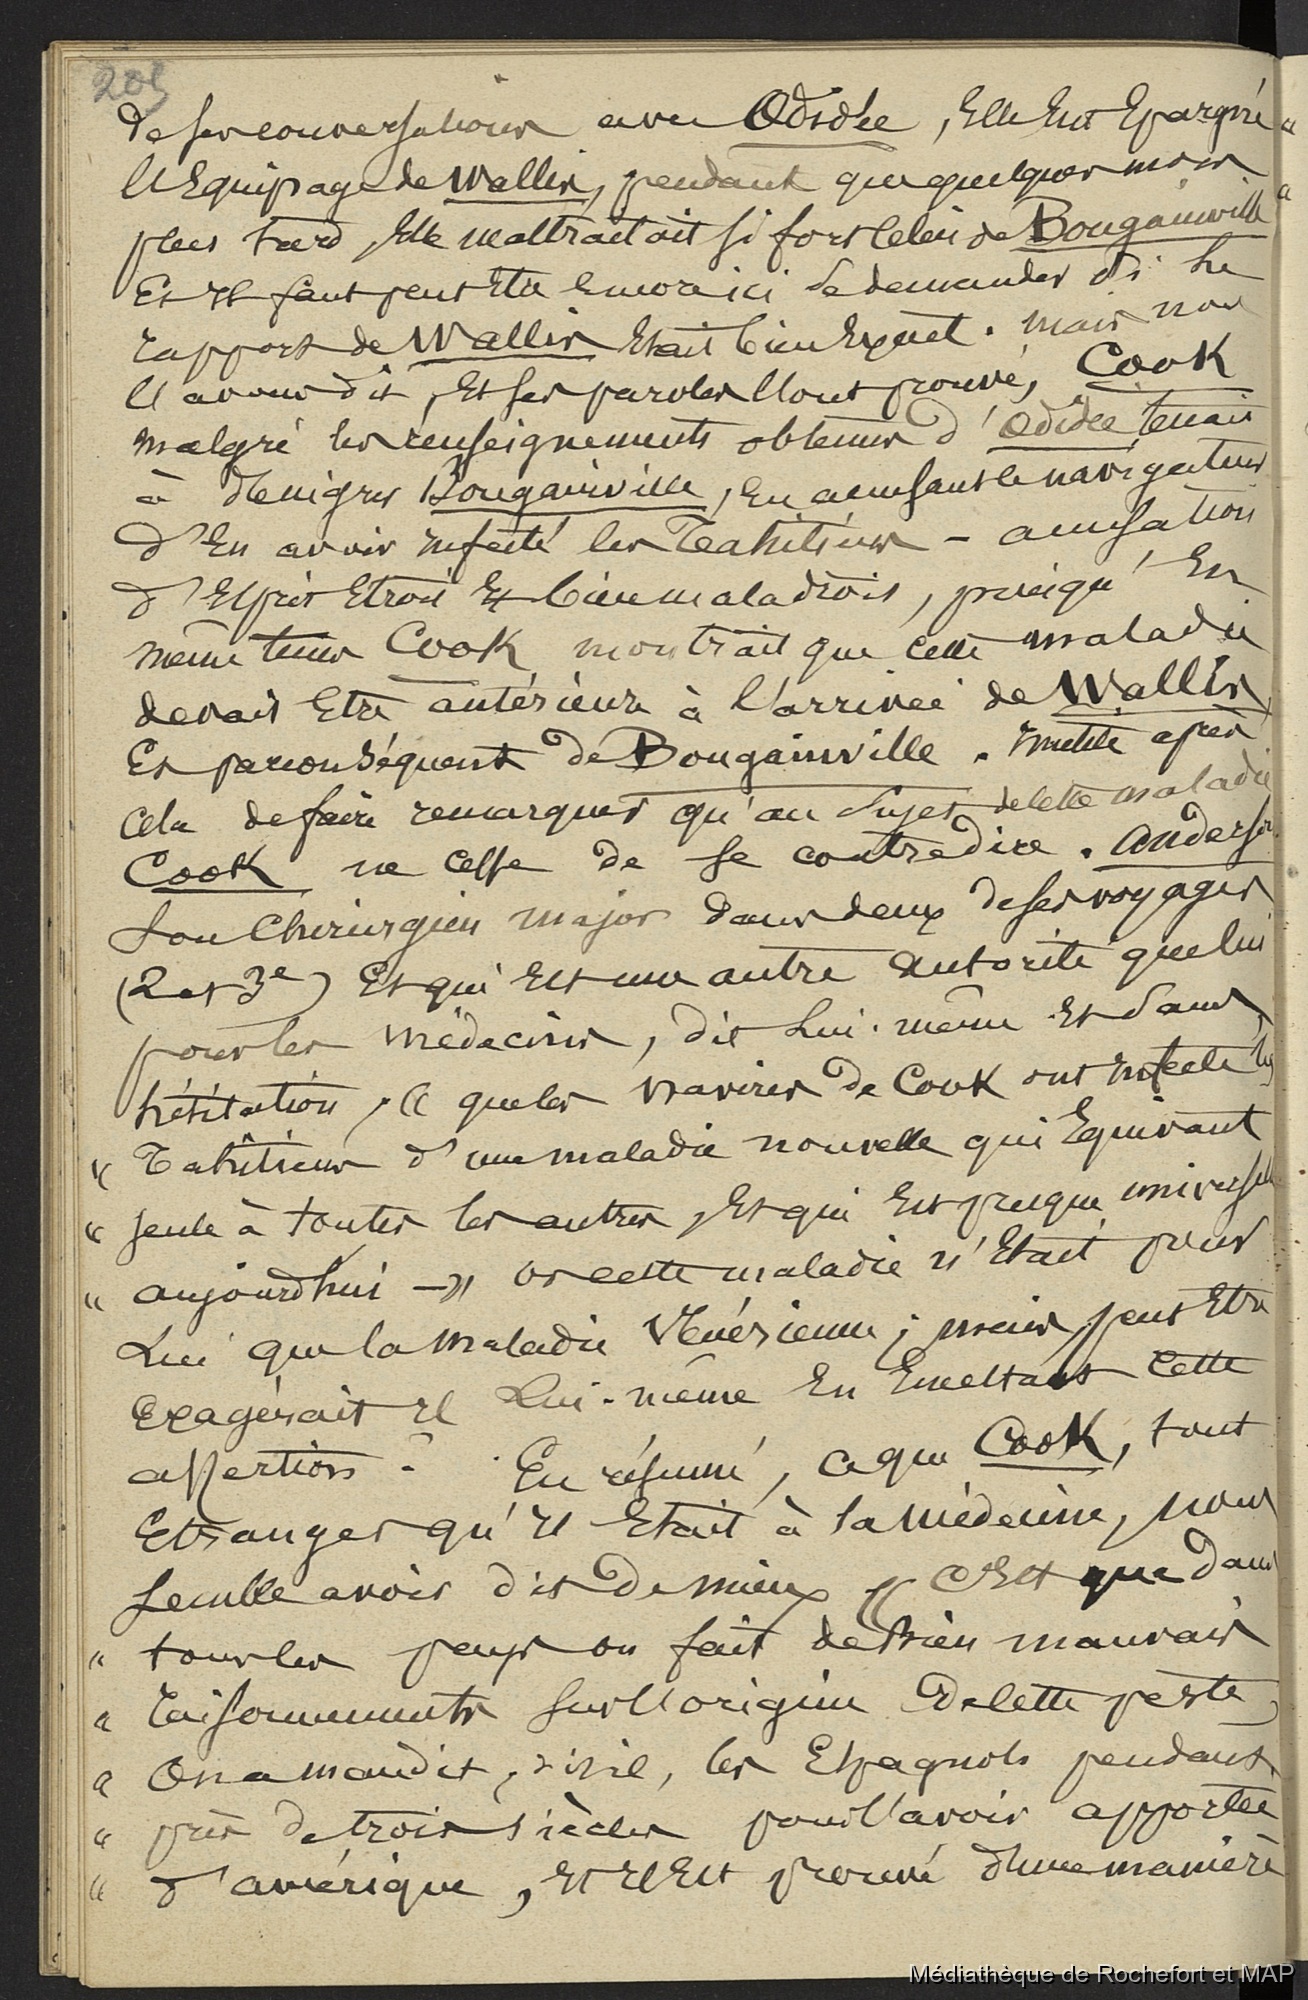 205
de ses conversations avec Œdidée, Elle eut Epargné
l'Equipage de Wallis, pendant que quelques mois
plus tard, Elle maltraitait si fort celui de Bougainville
Et il faut peut Etre Encore ici se demander si le
rapport de Wallis Etait bien Exact. mais nous
l'avons dit, Et ses paroles l'ont prouvé, Cook
malgré les renseignements obtenus d'Œdidée, tenait
à dénigrer Bougainville, En accusant le navigateur
d'En avoir infecté les Tahitiens - accusation
d'Esprit Etroit Et bien maladroit, puisqu'En
même tems Cook montrait que cette maladie
devait Etre antérieure à l'arrivée de Wallis,
Et par conséquent de Bougainville. Inutile après
cela de faire remarquer qu'au sujet de cette maladie
Cook ne cesse de se contredire. Anderson
son Chirurgien major dans deux de ses voyages
(2 et 3e) Et qui Est une autre autorité que lui
pour les médecins, dit lui-même Et sans
hésitation, « que les navires de Cook ont infecté les
« Tahitiens d'une maladie nouvelle qui Equivaut
« seule à toutes les autres, Et qui Est presque universelle
« aujourd'hui -» or cette maladie n'Etait pour
Lui que la maladie Vénérienne ; mais peut Etre
Exagérait il Lui-même En Emettant cette
assertion ? En résumé, ce que Cook, tout
Etranger qu'il Etait à la médecine, nous
semble avoir dit de mieux « C'Est que dans
« tous les pays on fait de bien mauvais
« raisonnements sur l'origine de cette peste,
« On a maudit, dit il, les Espagnols pendant
« près de trois siècles pour l'avoir apportée
« d'amérique, Et il Est prouvé d'une manière
Médiathèque de Rochefort et MAP